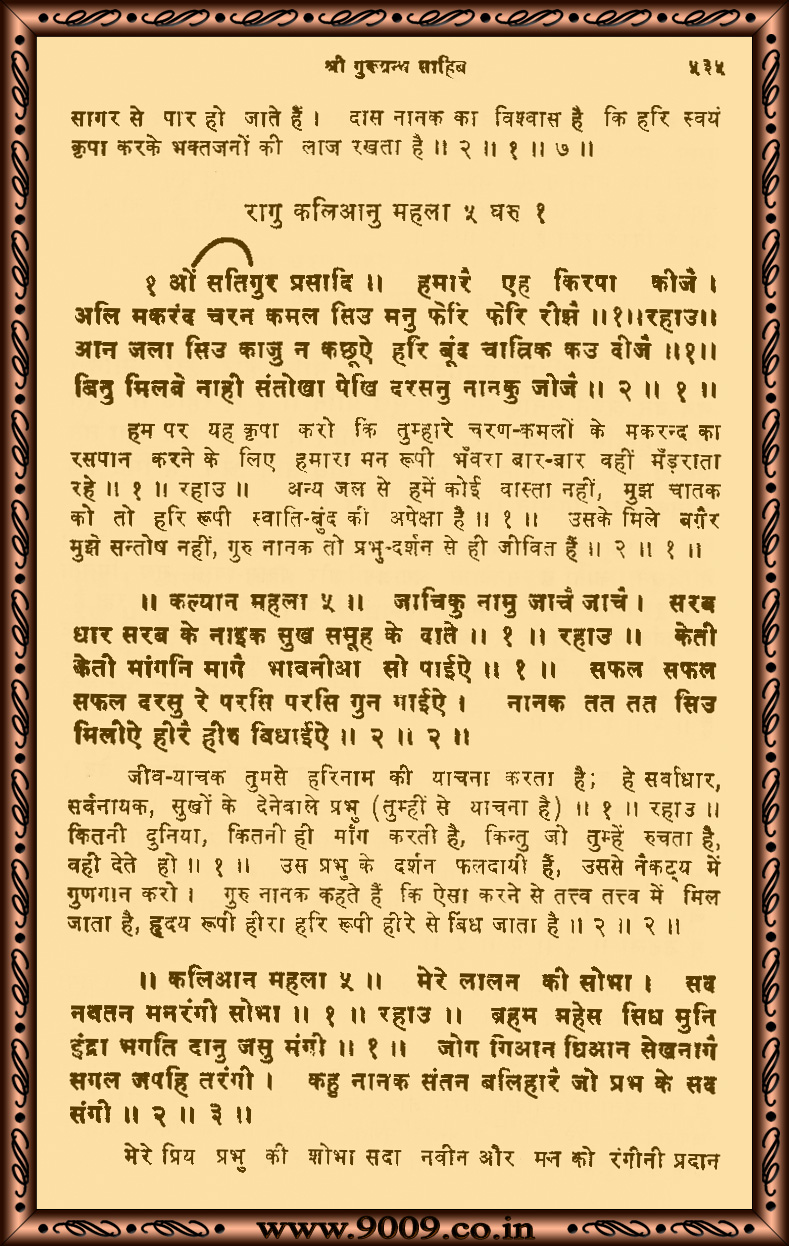 श्री गुरूग्रन्थ साहिब ५३५
सागर से पार हो जाते हैं । दास नानक का विश्वास है कि हरि स्वयं
कृपा करके भक्तजनों की लाज रखता है ॥ २ ॥ १ ॥ ७ ॥
रागु कलिआनु महला ५ घरु १
१ ओं सतिगुर प्रसादि ॥ हमारै एह किरपा कीजै ।
अलि मकरंद चरन कमल सिउ मनु फेरि फेरि रीझै ॥१॥रहाउ॥
आन जला सिउ काजु न कछूऐ हरि बूंद चात्रिक कउ दीजै ॥१॥
बिनु मिलबे नाही संतोखा पेखि दरसनु नानकु जीजै ॥ २ ॥ १ ॥
हम पर यह कृपा करो कि तुम्हारे चरण-कमलों के मकरन्द का
रसपान करने के लिए हमारा मन रूपी भँवरा बार-बार वहीं मँड़राता
रहे ॥ १ ॥ रहाउ ॥ अन्य जल से हमें कोई वास्ता नहीं, मुझ चातक
को तो हरि रूपी स्वाति-बुंद की अपेक्षा है ॥ १ ॥ उसके मिले बग़ैर
मुझे सन्तोष नहीं, गुरु नानक तो प्रभु-दर्शन से ही जीवित हैं ॥ २ ॥ १ ॥
॥ कल्यान महला ५ ॥ जाचिकु नामु जाचै जाचै । सरब
धार सरब के नाइक सुख समूह के दाते ॥ १ ॥ रहाउ ॥ केती
केती मांगनि मागै भावनीआ सो पाईऐ ॥ १ ॥ सफल सफल
सफल दरसु रे परसि परसि गुन गाईऐ । नानक तत तत सिउ
मिलीऐ हीरै हीरु बिधाईऐ ॥ २ ॥ २ ॥
जीव-याचक तुमसे हरिनाम की याचना करता है; हे सर्वाधार,
सर्वनायक, सुखों के देनेवाले प्रभु (तुम्हीं से याचना है) ॥ १ ॥ रहाउ ॥
कितनी दुनिया, कितनी ही माँग करती है, किन्तु जो तुम्हें रुचता है,
वही देते हो ॥ १ ॥ उस प्रभु के दर्शन फलदायी हैं, उससे नैकट्य में
गुणगान करो । गुरु नानक कहते हैं कि ऐसा करने से तत्त्व तत्त्व में मिल
जाता है, हृदय रूपी हीरा हरि रूपी हीरे से बिंध जाता है ॥ २ ॥ २ ॥
॥ कलिआन महला ५ ॥ मेरे लालन की सोभा । सद
नवतन मनरंगी सोभा ॥ १ ॥ रहाउ ॥ ब्रहम महेस सिध मुनि
इंद्रा भगति दानु जसु मंगी ॥ १ ॥ जोग गिआन धिआन सेखनागै
सगल जपहि तरंगी । कहु नानक संतन बलिहारै जो प्रभ के सद
संगी ॥ २ ॥ ३ ॥
मेरे प्रिय प्रभु की शोभा सदा नवीन और मन को रंगीनी प्रदान
www.9009.co.in